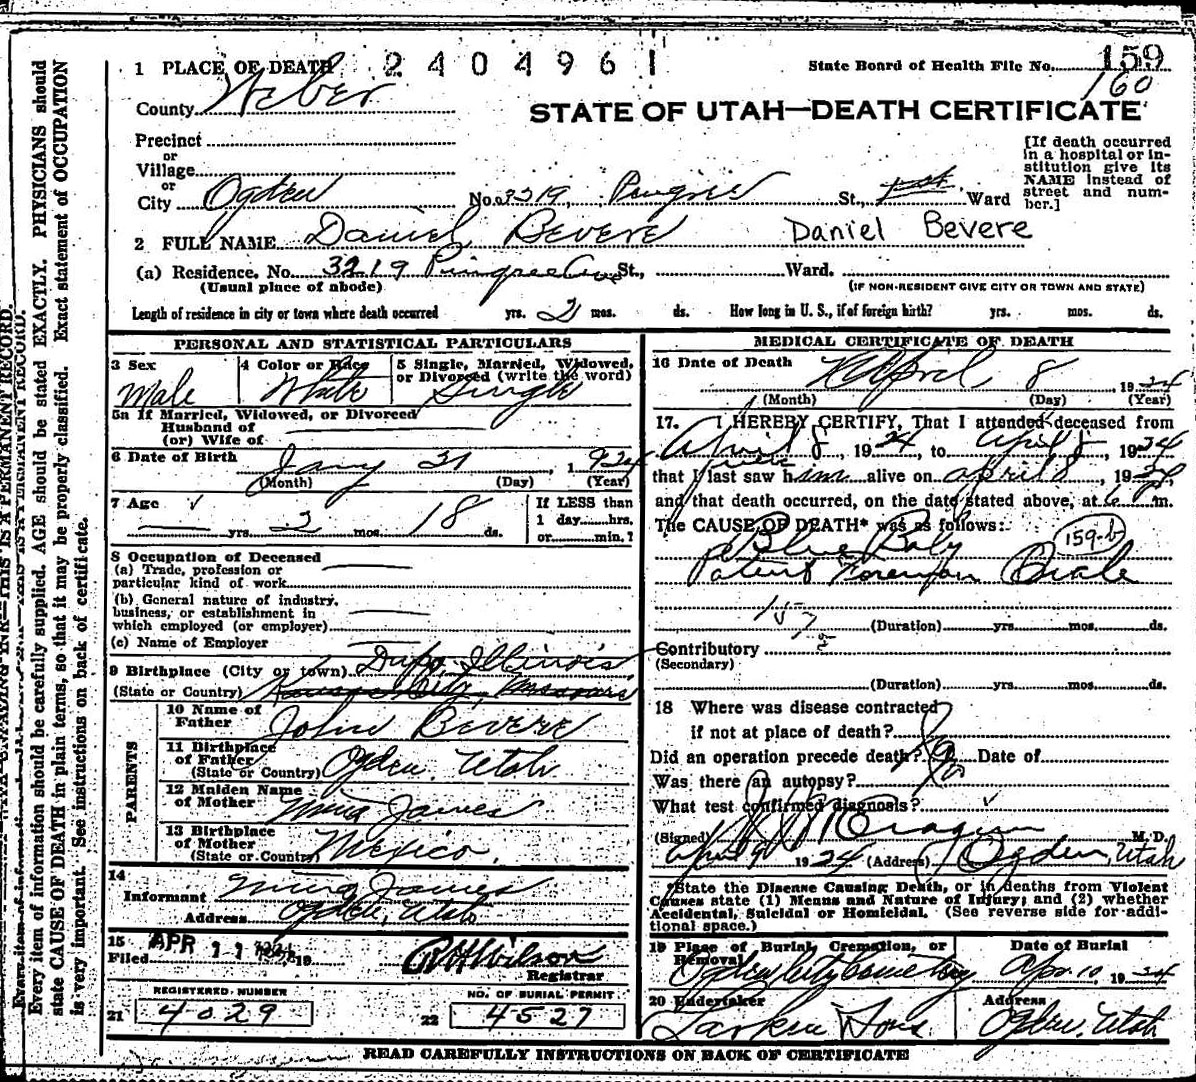 1 PLACE OF DEATH 2404961 State Board of Health File No. 159
160
County Weber
STATE OF UTAH—DEATH CERTIFICATE
Precinct
or
Village
or
City Ogden No. 3219, Pingree St., 1st Ward
[If death occurred
in a hospital or in-
stitution give its
NAME instead of
street and num-
ber.]
2 FULL NAME Daniel Bevere Daniel Bevere
(a) Residence. No. 3219 Pingree Ave St., Ward.
(Usual place of abode) (IF NON-RESIDENT GIVE CITY OR TOWN AND STATE)
Length of residence in city or town where death occurred yrs. 2 mos. ds. How long in U. S., if of foreign birth? yrs. mos. ds.
PERSONAL AND STATISTICAL PARTICULARS
3 Sex
Male
4 Color or Race
White
5 Single, Married, Widowed,
or Divorced (write the word)
Single
5a If Married, Widowed, or Divorced
Husband of
(or) Wife of
6 Date of Birth
Jany 21, 1924
(Month) (Day) (Year)
7 Age
yrs. 2 mos. 18 ds.
If LESS than
1 day......hrs.
or......min.?
8 Occupation of Deceased
(a) Trade, profession or
particular kind of work
(b) General nature of industry,
business, or establishment in
which employed (or employer)
(c) Name of Employer
9 Birthplace (City or town) Dupo, Illinois
(State or Country) Kansas City, Missouri
PARENTS
10 Name of
Father John Bevere
11 Birthplace
of Father
(State or Country) Ogden, Utah
12 Maiden Name
of Mother James
13 Birthplace
of Mother
(State or Country) Mexico.
14
Informant James
Address Ogden, Utah
15 APR 11 1924
Filed , 19 Wilson
Registrar
REGISTERED NUMBER
21 4029
NO. OF BURIAL PERMIT
22 4527
MEDICAL CERTIFICATE OF DEATH
16 Date of Death April 8 1924
(Month) (Day) (Year)
17. I HEREBY CERTIFY, That I attended deceased from
April 8, 1924, to April 8, 1924
that I last saw him alive on April 8, 1924,
and that death occurred, on the date stated above, at 6 m.
The CAUSE OF DEATH* was as follows:
Blue Baby 159-b
Patent Foramen Ovale
157
(Duration) yrs. mos. ds.
Contributory
(Secondary)
(Duration) yrs. mos. ds.
18 Where was disease contracted
if not at place of death?
Did an operation precede death? No Date of
Was there an autopsy? No
What test confirmed diagnosis?
(Signed) M. D.
April 9 1924 (Address) Ogden, Utah
*State the Disease Causing Death, or in deaths from Violent
Causes state (1) Means and Nature of Injury; and (2) whether
Accidental, Suicidal or Homicidal. (See reverse side for addi-
tional space.)
19 Place of Burial, Cremation, or
Removal
Ogden City Cemetery
Date of Burial
Apr. 10, 1924
20 Undertaker
Larkin & Sons
Address
Ogden, Utah
READ CAREFULLY INSTRUCTIONS ON BACK OF CERTIFICATE
Every item of information should be carefully supplied. AGE should be stated EXACTLY. PHYSICIANS should
state CAUSE OF DEATH in plain terms, so that it may be properly classified. Exact statement of OCCUPATION
is very important. See instructions on back of certificate.
THIS IS A PERMANENT RECORD.